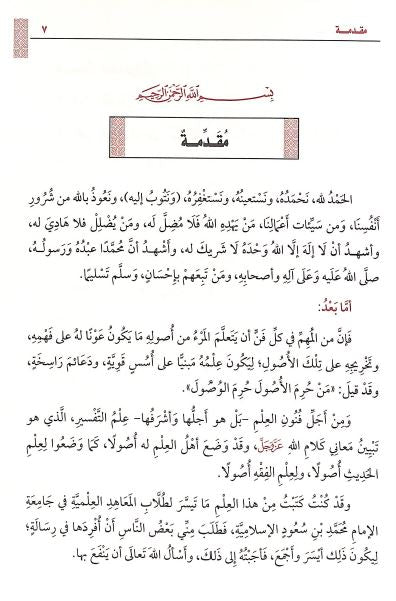 مقدمـة
٧
بِسْمِ اللَّهِ الرَّحْمَٰنِ الرَّحِيمِ
مُقَدِّمَةٌ
الحَمْدُ لله، نَحْمَدُهُ، ونَسْتعينُهُ، ونَسْتغفِرُهُ، (ونَتُوبُ إليه)، ونَعُوذُ بالله من شُرُورِ
أَنْفُسِنَا، وَمن سَيِّئَات أَعْمَالِنَا، مَنْ يَهْدِهِ اللهُ فَلَا مُضِلَّ لَه، ومَنْ يُضْلِلْ فلا هادِيَ له،
وأشهدُ أنْ لَا إِلَهَ إلَّا اللهُ وَحْدَهُ لَا شَريكَ له، وأَشْهدُ أنَّ مُحَمَّدًا عبدُهُ وَرَسولُـهُ،
صلَّى اللهُ عَلَيه وَعَلَى آلِهِ وأصحابِهِ، ومَنْ تَبِعَهُمْ بِإِحْسَانٍ، وَسلَّم تَسْليمًا.
أمَّا بَعْدُ:
فَإنَّ من المُهِمِّ في كلِّ فَنٍّ أن يَتعلَّمَ المَرْءُ من أُصولِهِ مَا يَكونُ عَوْنًا لهُ على فَهْمِهِ،
وتَخْرِيجِهِ على تِلكَ الأُصُولِ؛ لِيَكُونَ عِلْمُهُ مَبنيًّا على أُسُسٍ قَوِيَّةٍ، ودَعَائِمَ رَاسِخَةٍ،
وقَدْ قيلَ: «مَنْ حُرِمَ الأُصُولَ حُرِمَ الوُصُولَ».
وَمِنْ أَجَلِّ فُنُونِ العِلْمِ -بَل هو أجلُّها وأشرفُها- عِلْمُ التَّفْسِيرِ، الَّذي هو
تَبْيِينُ مَعَاني كَلَامِ الله عَزَّوَجَلَّ، وقَدْ وَضَعَ أَهْلُ العِلمِ له أُصولًا، كَمَا وَضَعُوا لِعِلْمِ
الحَدِيثِ أُصُولًا، ولِعِلْمِ الفِقْهِ أُصُولًا.
وقَدْ كُنْتُ كَتَبْتُ مِنْ هذا العِلْمِ مَا تَيسَّرَ لطُلَّابِ المَعَاهِدِ العِلْمِيَّةِ في جَامِعَةِ
الإمامِ مُحَمَّدِ بْنِ سُعُودٍ الإسلاميَّةِ، فَطَلَبَ مِنِّي بَعْضُ النَّاسِ أَنْ أُفْرِدَهَا في رِسَالَةٍ؛
لِيَكُونَ ذَلِكَ أيْسَرَ وأَجْمَعَ، فَأجَبْتُهُ إلى ذَلكَ، وَأَسْأَلُ اللهَ تعَالى أَن يَنْفَعَ بِها.